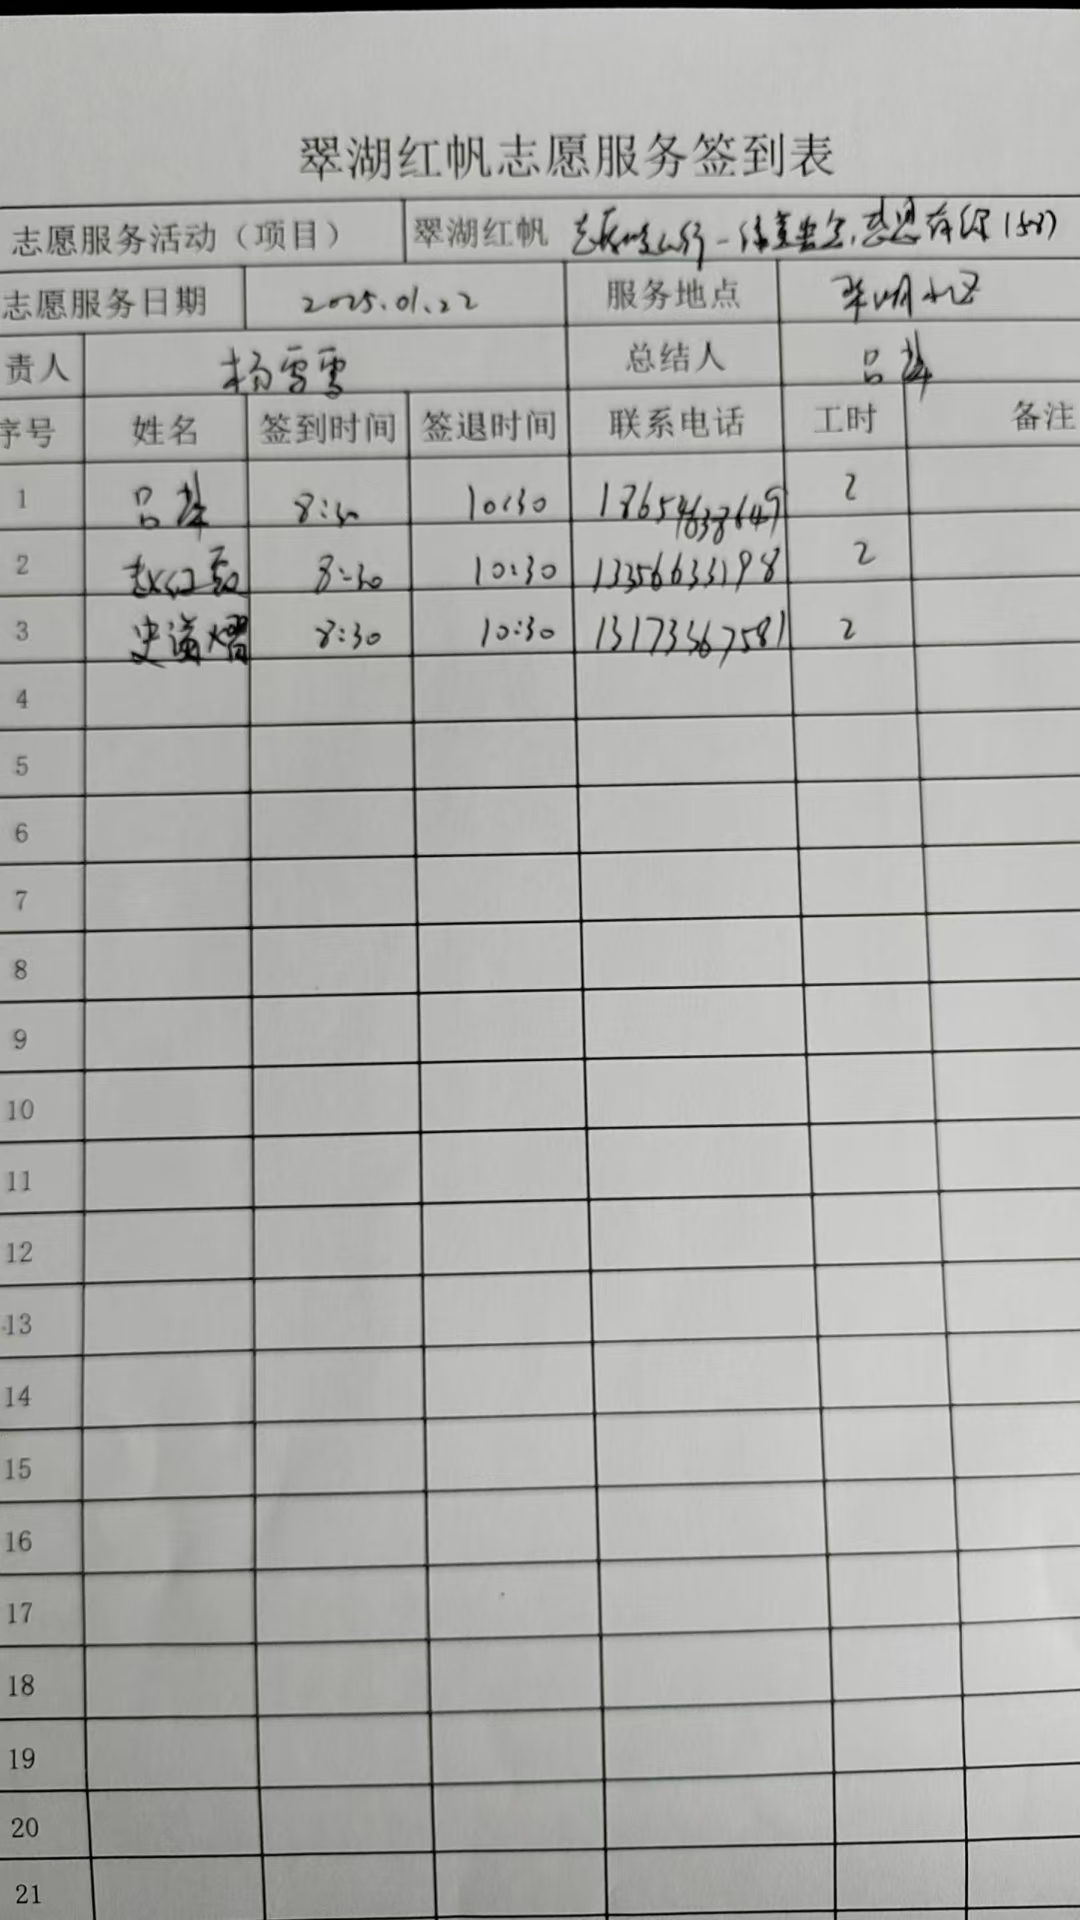 翠湖红帆志愿服务签到表
志愿服务活动（项目） 翠湖红帆 感恩有你
志愿服务日期 2025.01.22 服务地点 翠湖
责人 杨雪雪 总结人 吕
序号 姓名 签到时间 签退时间 联系电话 工时 备注
1 吕 8:30 10:30 2
2 赵红霞 8:30 10:30 13356633198 2
3 史 熠 8:30 10:30 13173367581 2
4
5
6
7
8
9
10
11
12
13
14
15
16
17
18
19
20
21